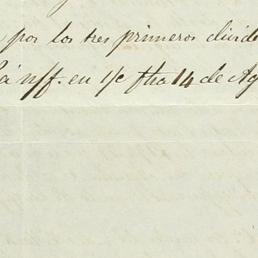 por los tres primeros divide
á nff. en 1/c fha 14 de Ag